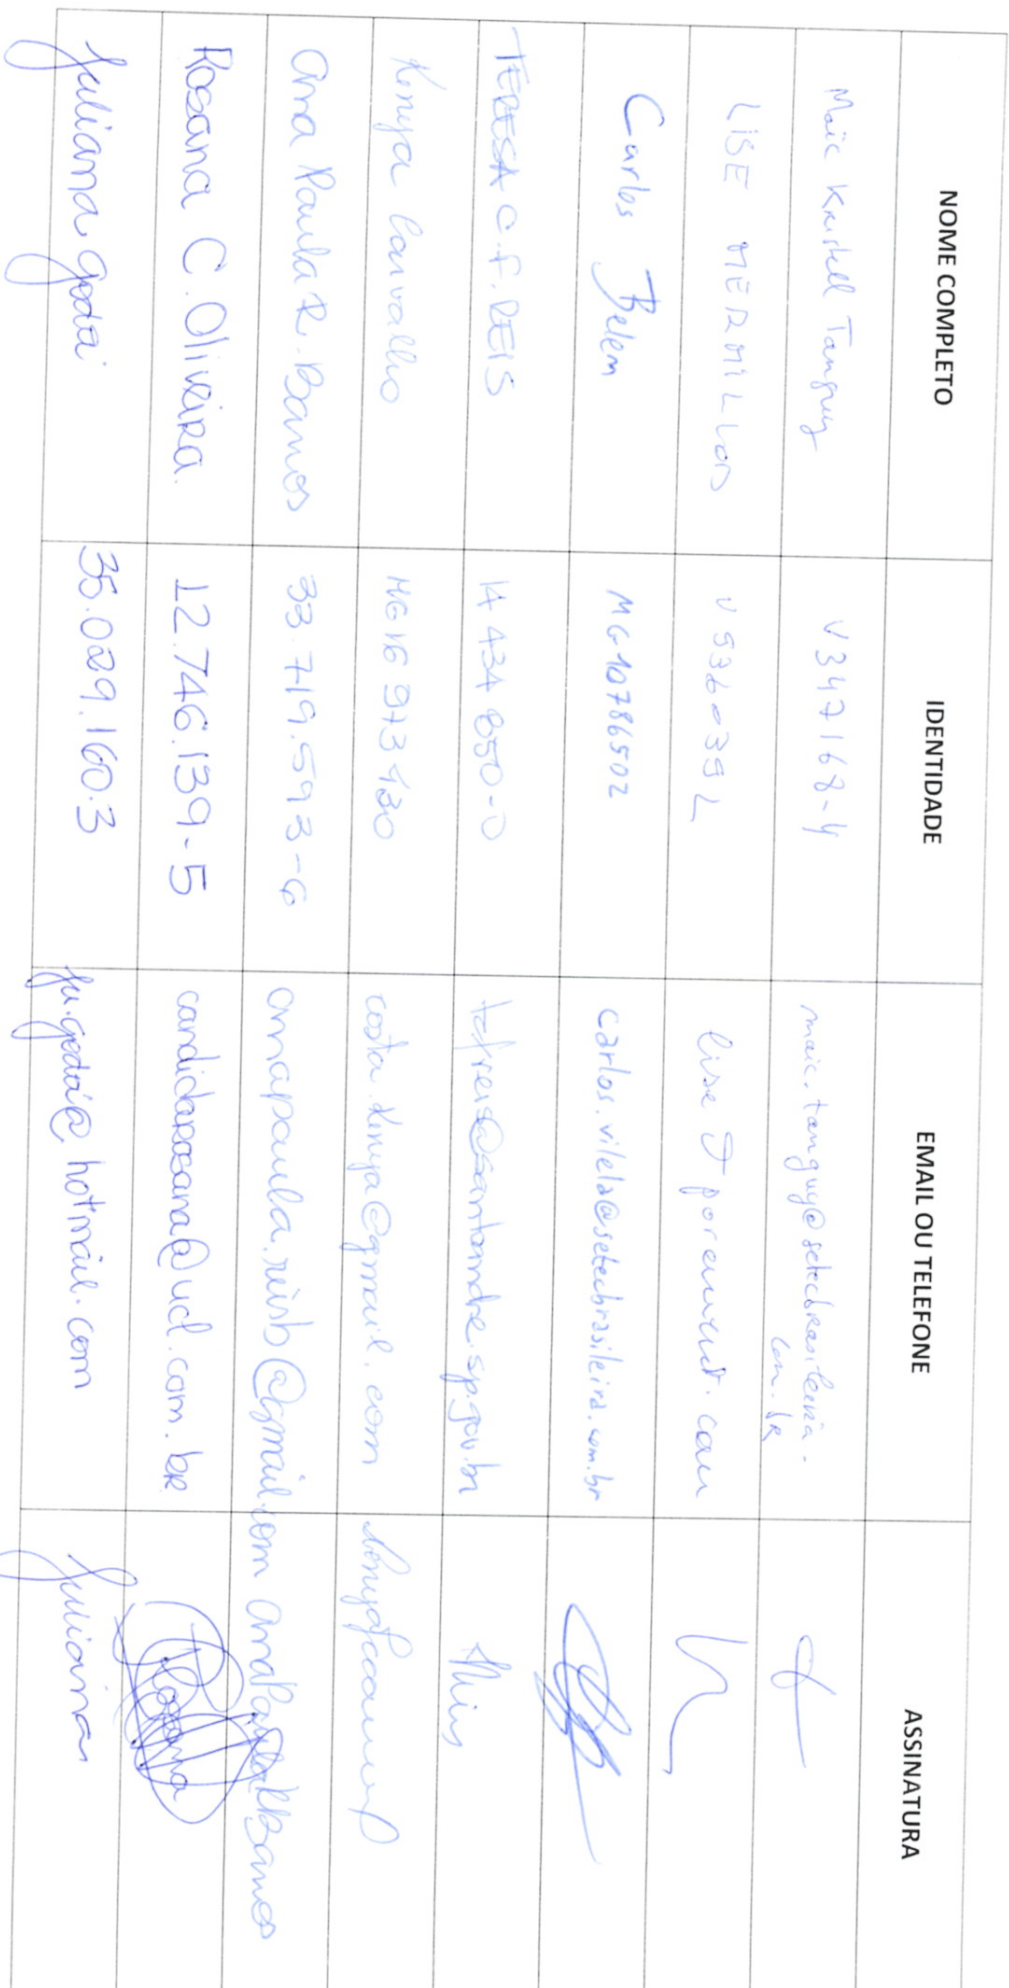 NOME COMPLETO IDENTIDADE EMAIL OU TELEFONE ASSINATURA
Maïc Kristell Tanguy V347168-4 maic.tanguy@setecbrasileira.
com.br
LISE MERMILLOD
Carlos Belem MG-10786502 carlos.vilela@setecbrasileira.com.br
TERESA C.F. REIS 14 434 850-0 tcfreis@santoandre.sp.gov.br
Kenya Carvalho costa.kenya@gmail.com
Ana Paula R. Barros 33.719.593-6 anapaula.reisb@gmail.com Ana Paula R Barros
Rosana C. Oliveira. 12.746.139-5 candidarosana@uol.com.br Rosana
Juliana Godoi 35.029.160.3 ju.godoi@hotmail.com Juliana